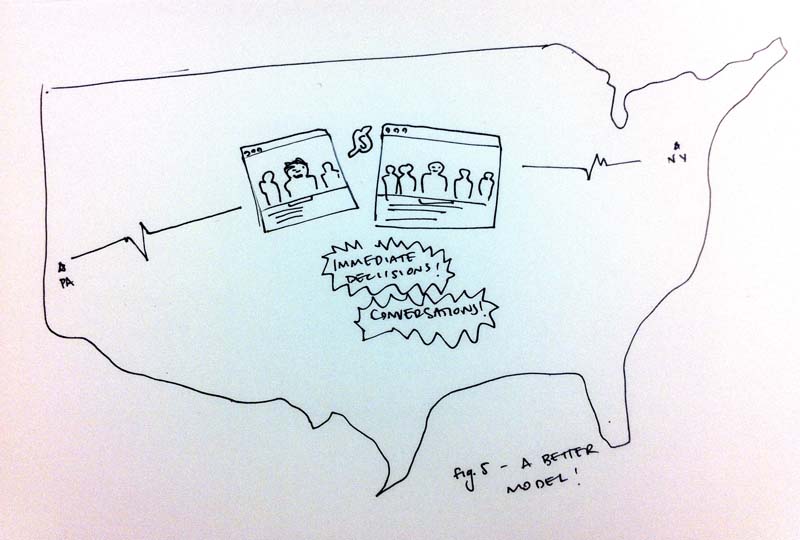 NY
PA
IMMEDIATE
DECISIONS!
CONVERSATIONS!
fig. 5 - A BETTER
MODEL!